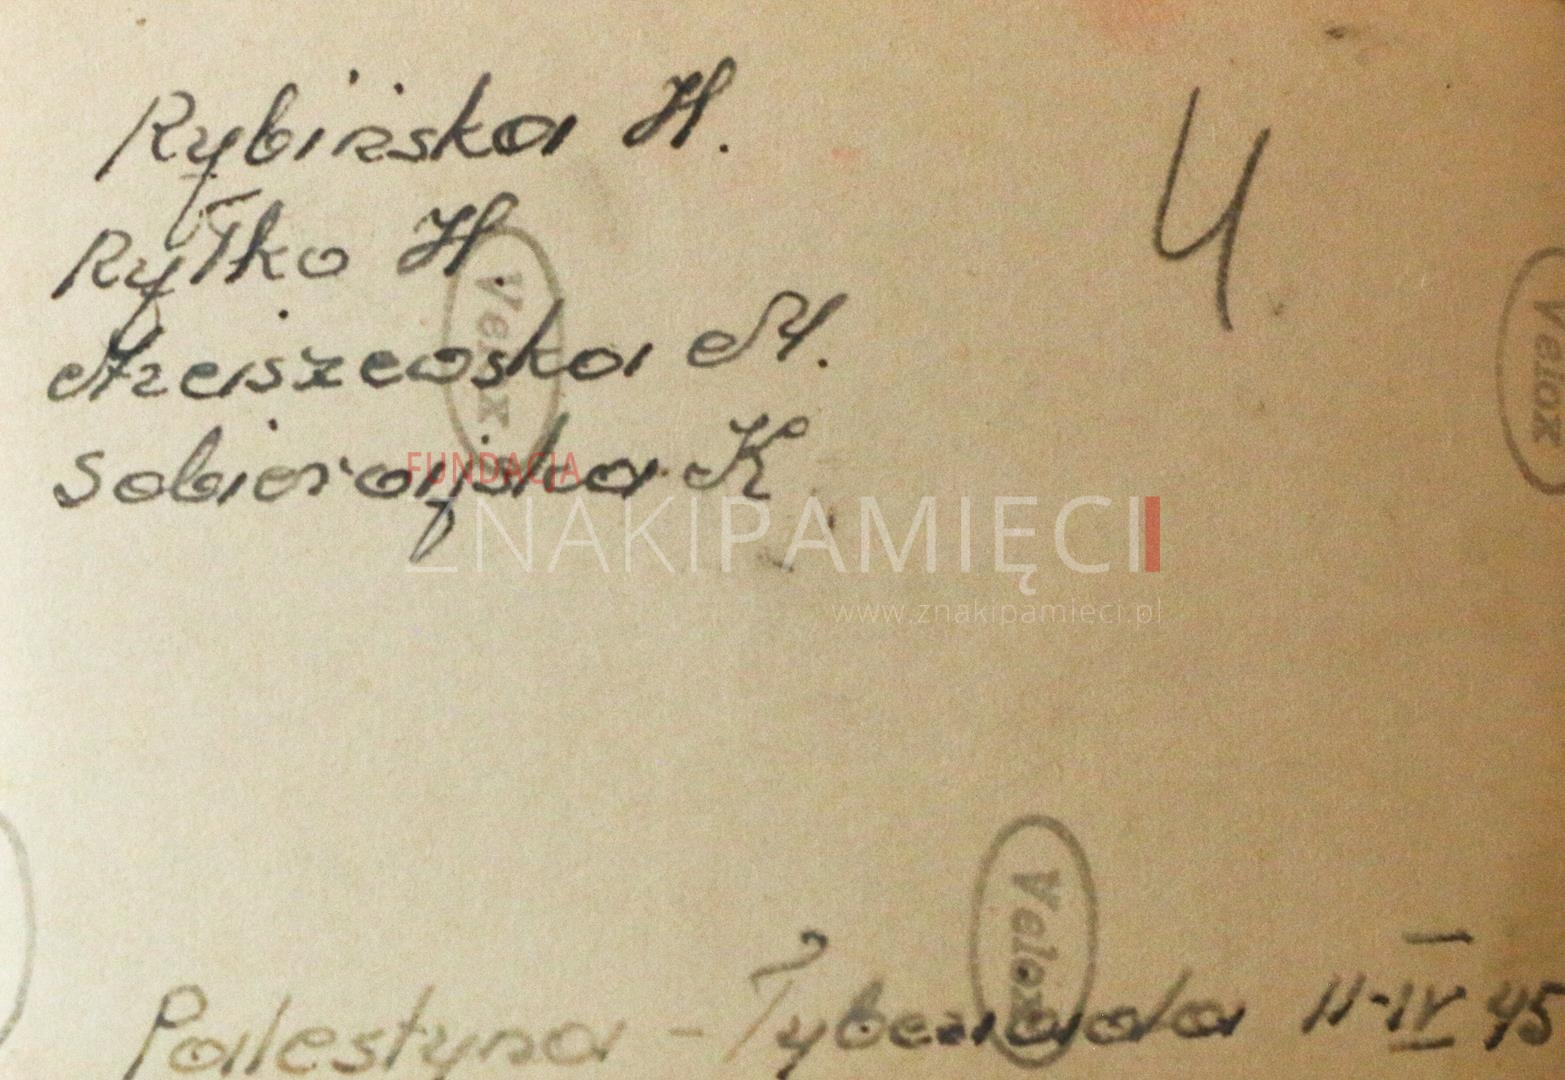 Rybińska H.
4
Ryłko H.
Velox
Velox
Arciszewska M.
Sobierajska K
FUNDACJA
ZNAKIPAMIĘCI
www.znakipamieci.pl
Velox
Palestyna - Tyberiada 11-IV 45